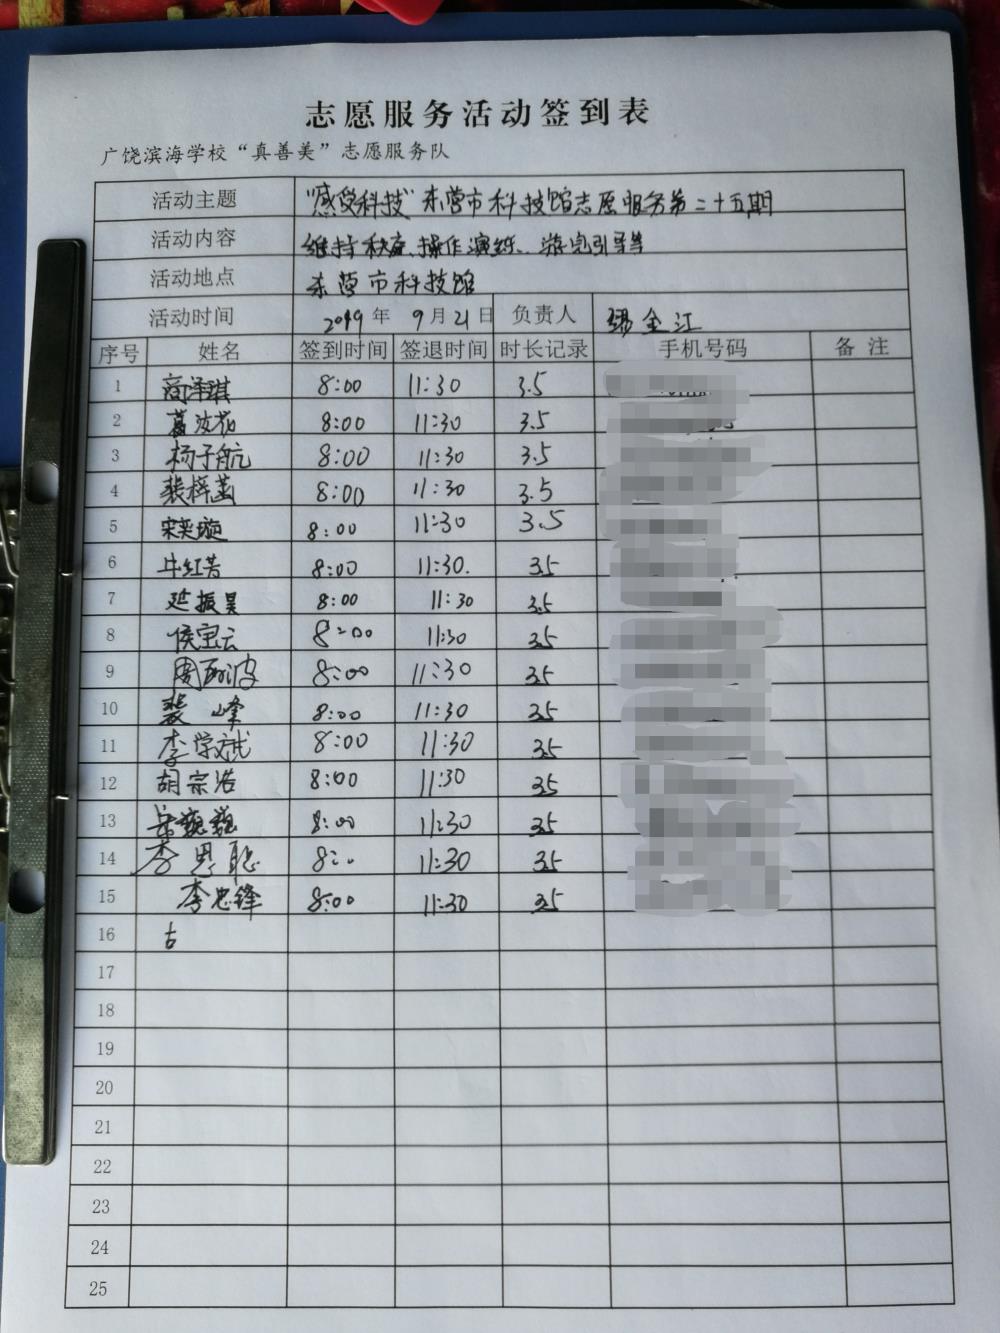 志愿服务活动签到表
广饶滨海学校“真善美”志愿服务队
活动主题 “感受科技”东营市科技馆志愿服务第二十五期
活动内容 维持秩序、操作演练、游览引导等
活动地点 东营市科技馆
活动时间 2019年 9月21日 负责人 金江
序号 姓名 签到时间 签退时间 时长记录 手机号码 备注
1 商泽琪 8:00 11:30 3.5
2 葛汝花 8:00 11:30 3.5
3 杨子航 8:00 11:30 3.5
4 裴梓菡 8:00 11:30 3.5
5 宋奕璇 8:00 11:30 3.5
6 牛红芳 8:00 11:30. 3.5
7 延振昊 8:00 11:30 3.5
8 侯宝云 8:00 11:30 3.5
9 周丽波 8:00 11:30 3.5
10 裴峰 8:00 11:30 3.5
11 李学斌 8:00 11:30 3.5
12 胡宗浩 8:00 11:30 3.5
13 巍巍 8:00 11:30 3.5
14 李恩聪 8:0 11:30 3.5
15 李忠锋 8:00 11:30 3.5
16 古
17
18
19
20
21
22
23
24
25